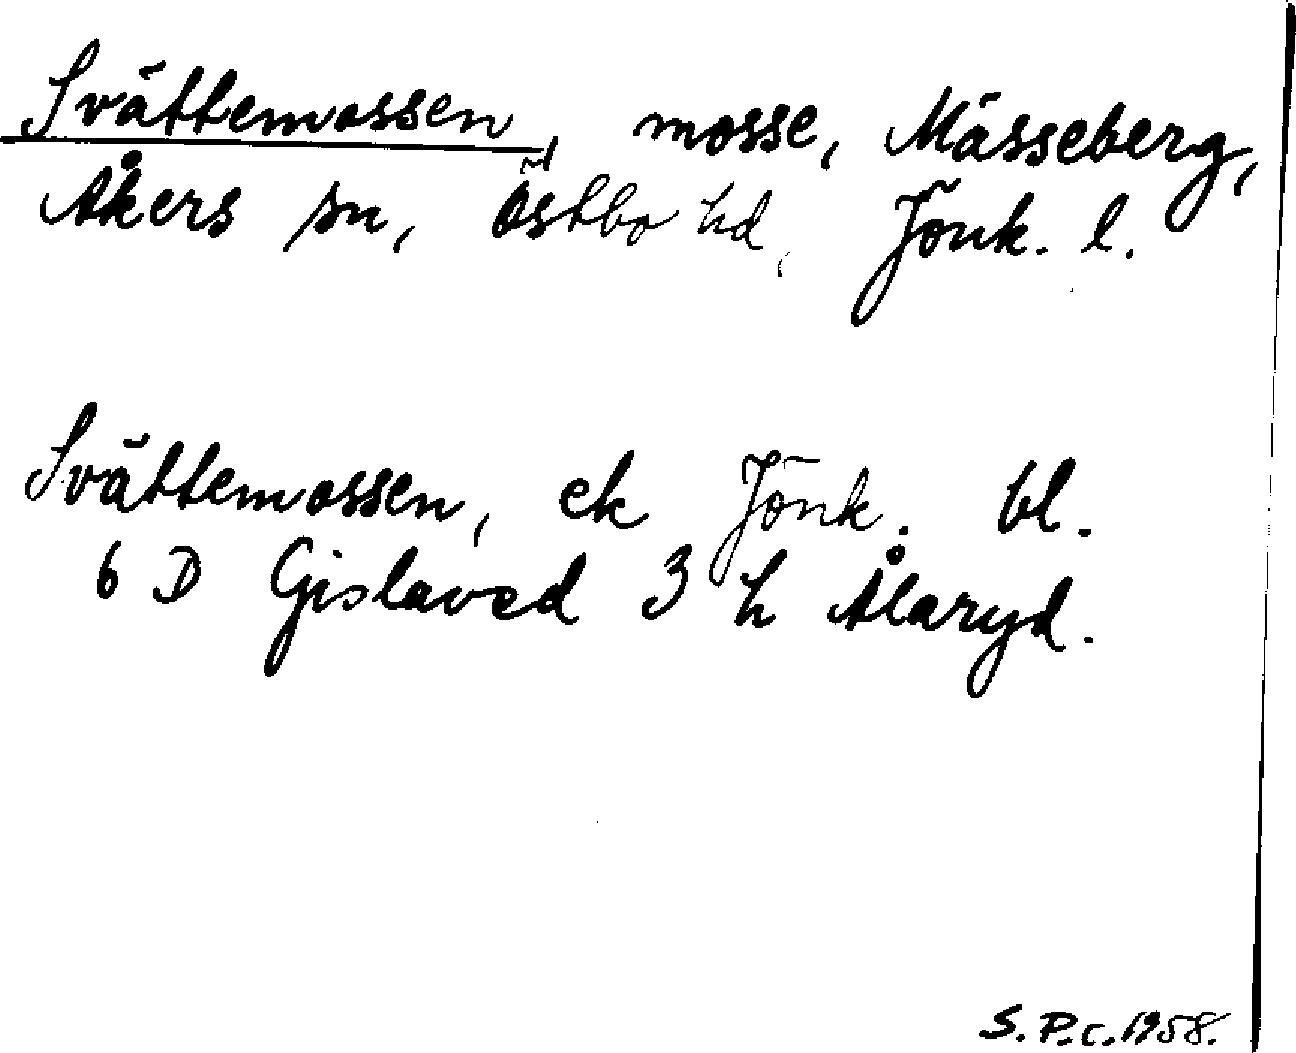 Svättemossen, mosse, Mässeberg,
Åkers sn, Östbo hd, Jönk. l.
Svättemossen, ek Jönk. bl.
6 D Gislaved 3 h Ålaryd.
S.P.c.1958.